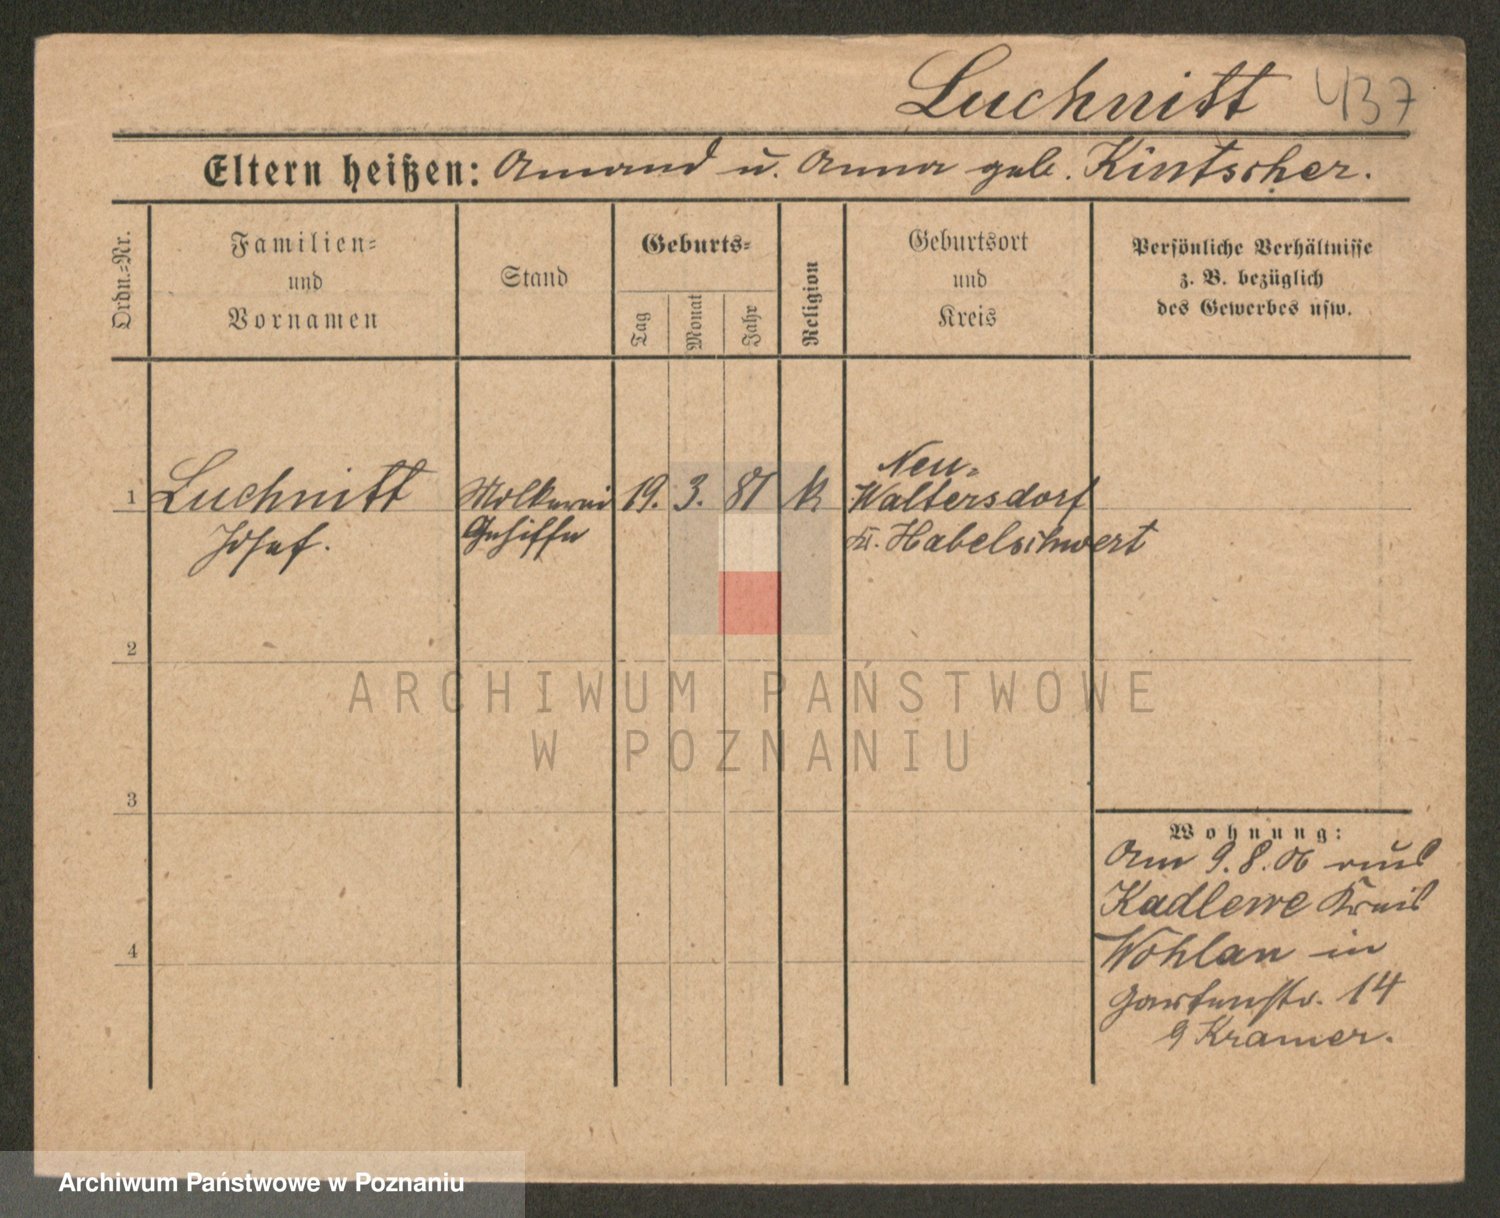 Luchnitt 437
Eltern heißen: Amand u. Anna geb. Kintscher.
Ordn.-Nr.
Familien-
und
Vornamen
Stand
Geburts-
Tag
Monat
Jahr
Religion
Geburtsort
und
Kreis
Persönliche Verhältnisse
z. B. bezüglich
des Gewerbes usw.
1 Luchnitt
Josef.
Molkerei
Gehilfe
19. 3. 81 k
Neu-
Waltersdorf
Kr. Habelschwert
2
3
4
Wohnung:
Am 9.8.06 aus
Kadlewe Kreis
Wohlau in
Gartenstr. 14
Kramer.
ARCHIWUM PAŃSTWOWE
W POZNANIU
Archiwum Państwowe w Poznaniu